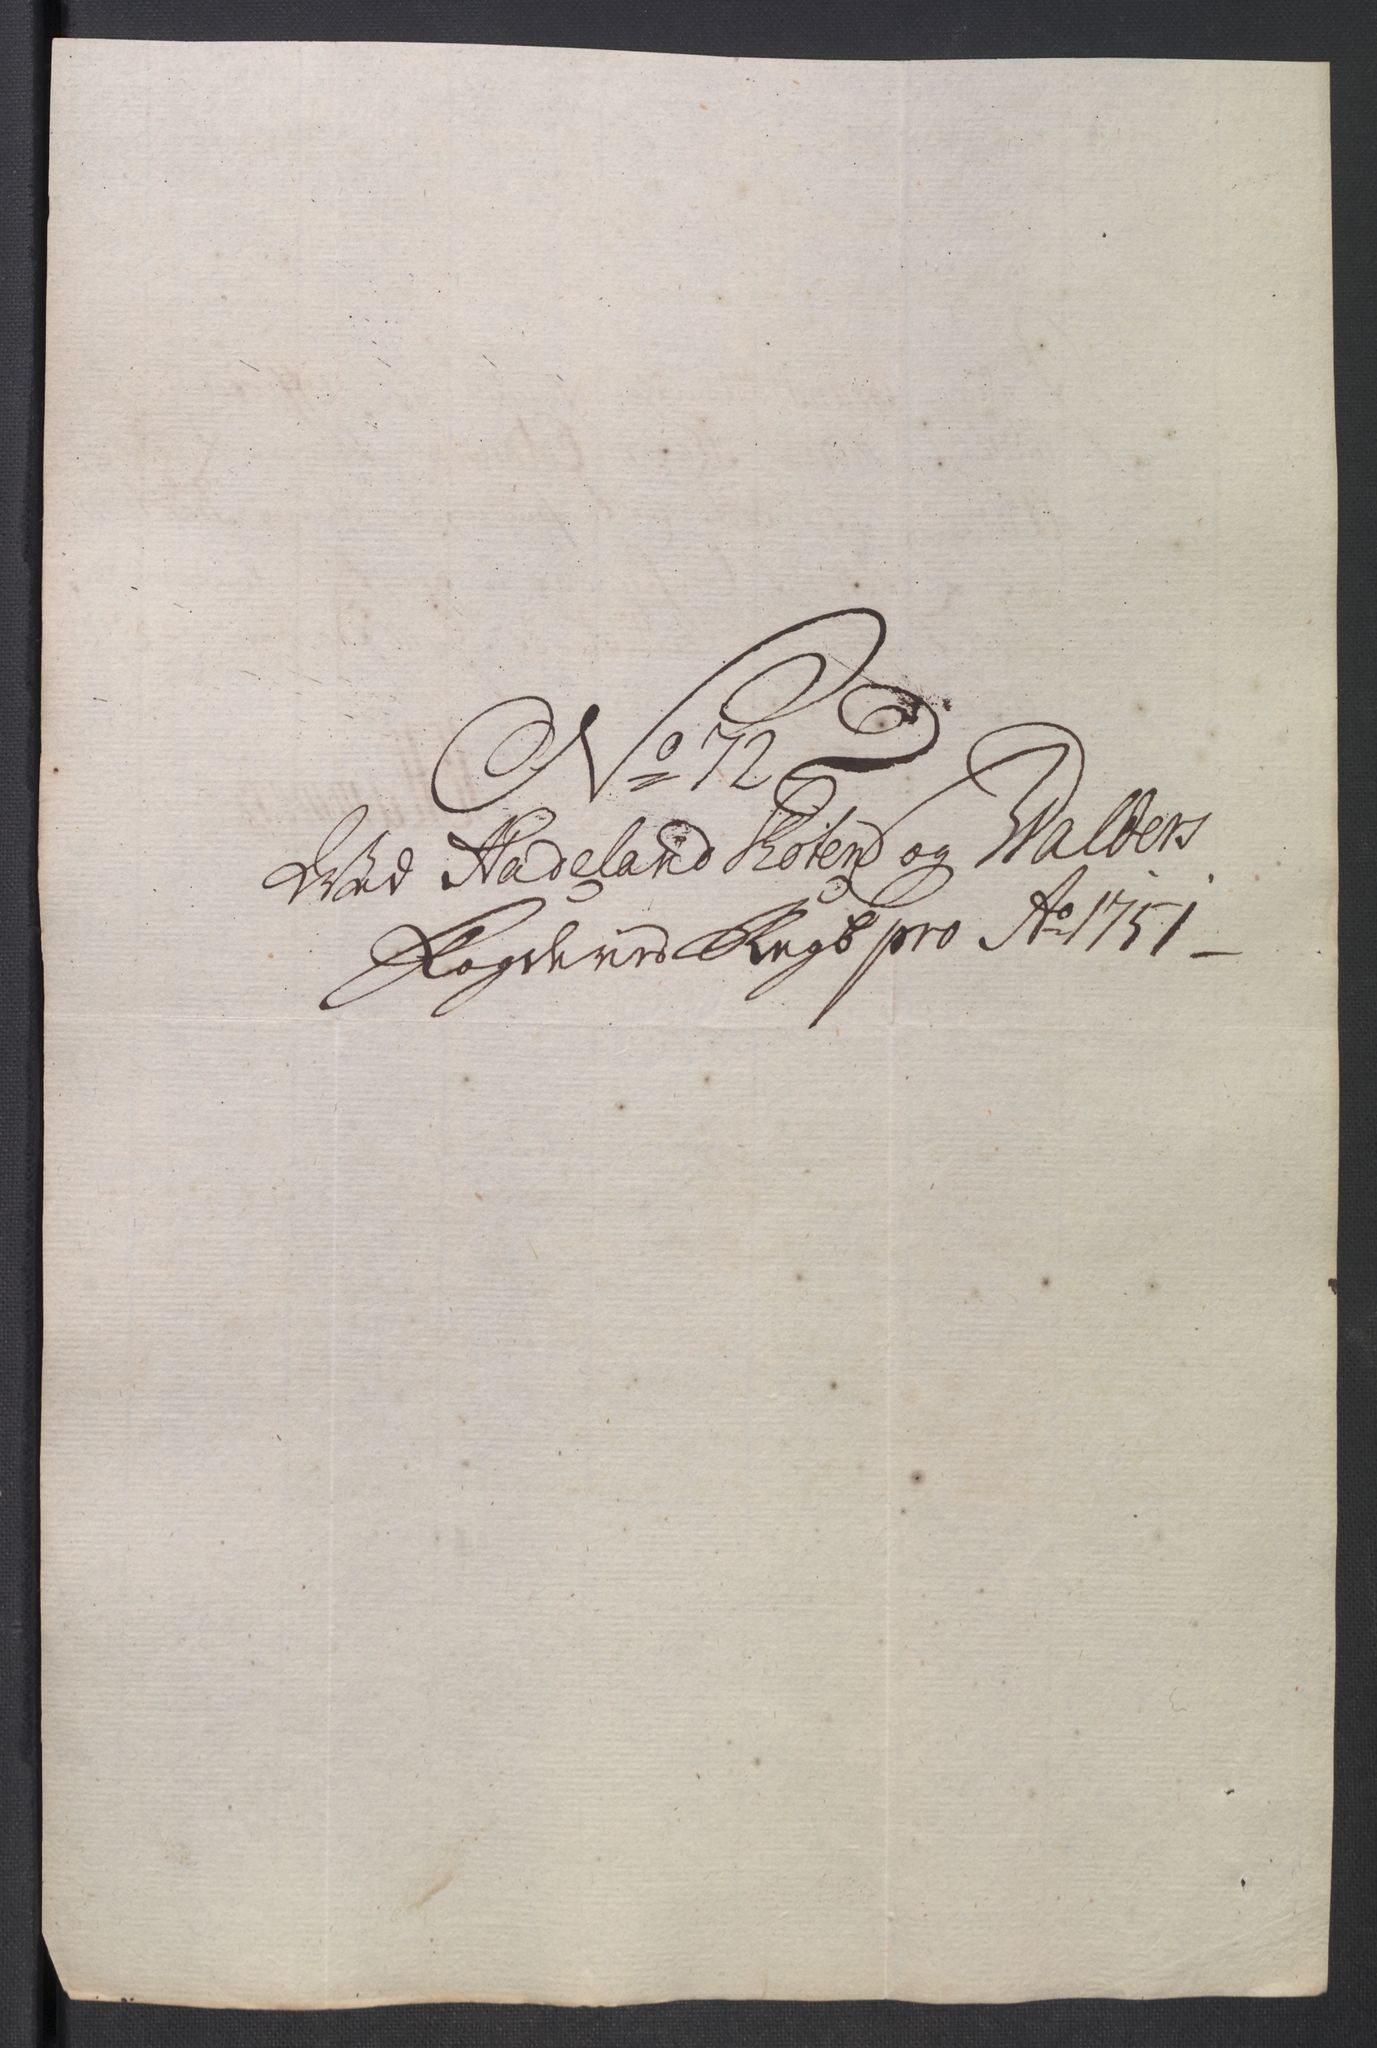 No 72
Wed Hadeland Toten og Walders
Fogderies Regsb pro Ao 1751